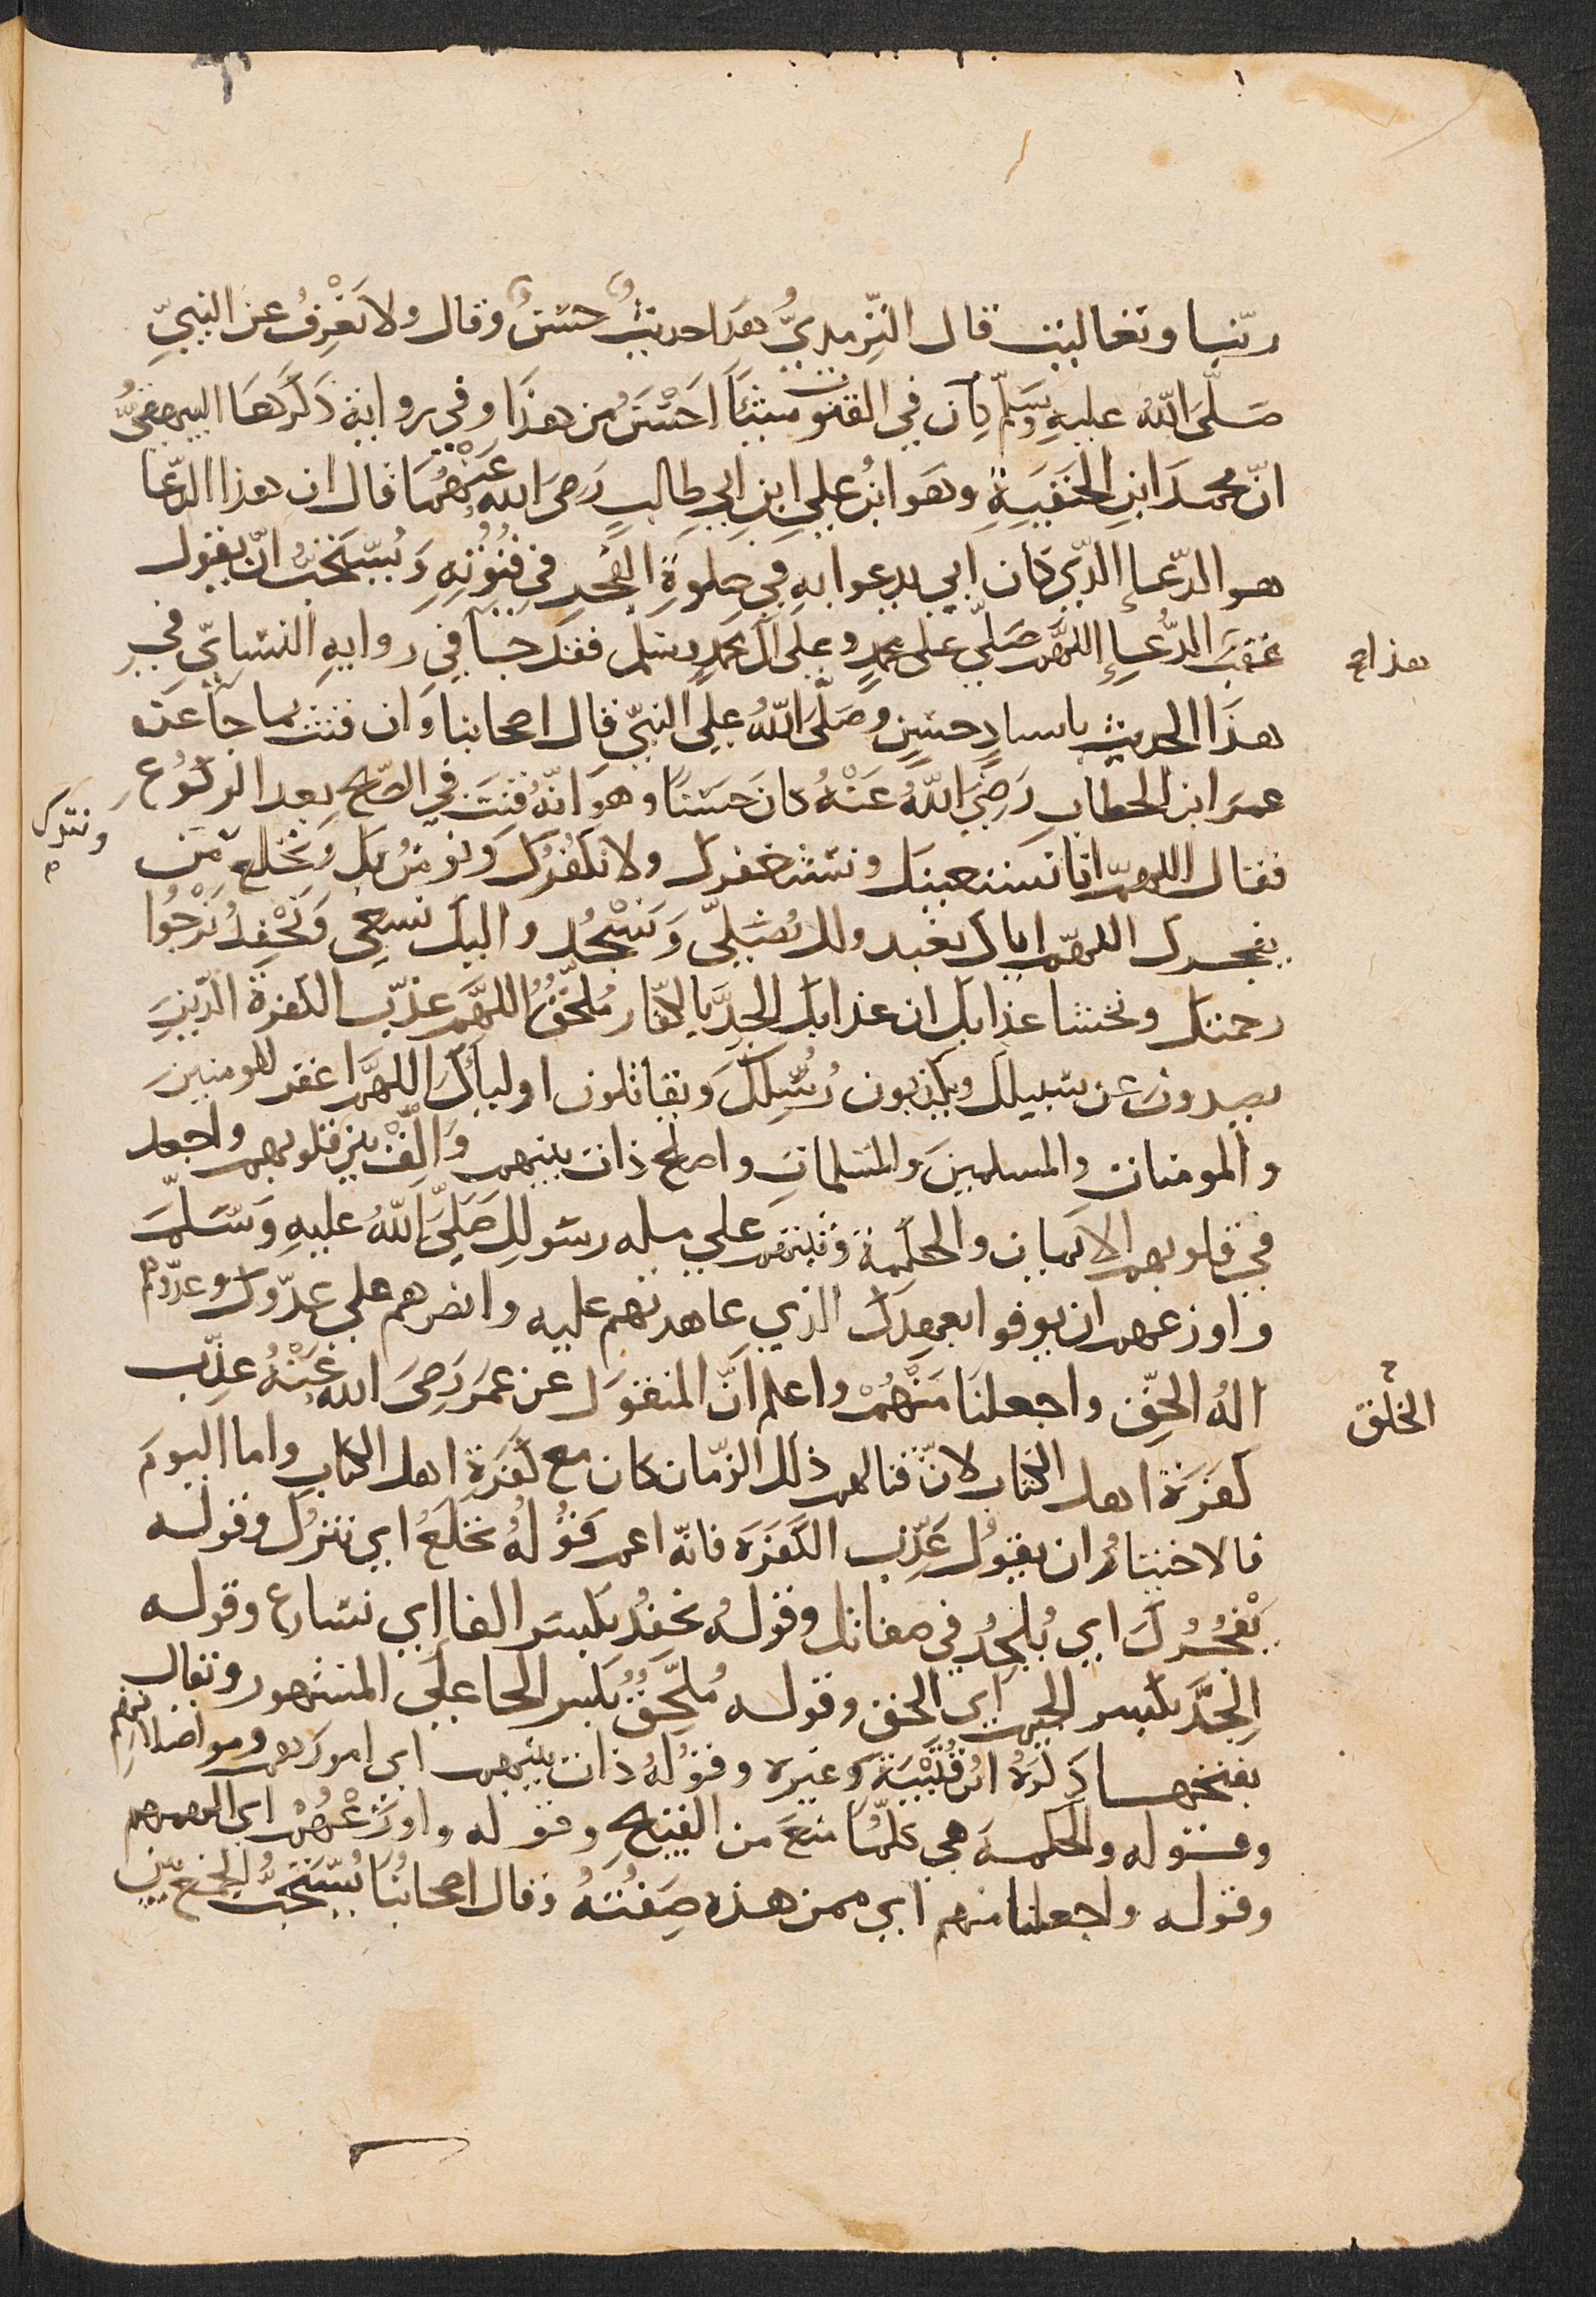 ربّنا وتعاليت قال التِّرمِديُّ هذا حديثٌ حَسَنٌ وقال ولا نَعْرِفُ عن النبيِّ
صَلَّى اللّهُ عليهِ وَسَلَّم كان في القنوت شيئًا اَحْسَنُ من هذَا وفي رواية ذَكَرهَا البيهقيُّ
انّ محمدَ ابنِ الحَنَفيَةِ وهَو ابنُ علِي ابنِ ابي طالبٍ رَضِيَ الله عَنْهُمَا قال ان هذا الدّعا
هو الدّعا الدّي كان ابي يدعوا بهِ في صلوةِ الفجرِ في قنُوُتِهِ وَيُسْتَحَبُّ انّ يقول
عَقبَ الدُّعاءِ اللهمَّ صَلّي على محمدٍ وعلَى الَ محمدٍ وسلم فقد جَاَ فِي روايةِ النسَايّي في
هذا
هذَا الحديثِ باسنادٍ حسَنٍ وصَلَّى اللّهُ علي النبيِّ قال اصحابنا وَان قنتَ بما جاَ عَن
عمرَ ابن الخطابِ رَضِيَ اللّهُ عَنْهُ كانَ حسَنًا وهوَ انّهُ قنَتَ في الصّبحِ بعد الركوُع
فقال اللهمّ انا نَستعينكَ ونستغفرك ولا نكفُرُكَ وَنومنُ بكَ وَنَخلَعُ مَن
ونترك
يفجرك اللهمّ اياك نعبد ولك نُصَلِّي وَنَسْجُد واليكَ نسعي وَنَحْفِدُ نَرْجُوا
رحمتكَ ونخشا عذابكَ ان عذابكَ الجِدَّ بالكفّارِ مُلحِقُ اللهمَّ عذّب الكفرةَ الّذينَ
يصدونَ عن سَبيلكَ ويكذبون رُسُلكَ وَيقاتلون اولياَكَ اللهمَّ اغفر للمومنينَ
والمومنات والمسلمينَ والمُسَلماتِ واصلح ذات بينهم وَاَلّفْ بين قلوبهم واجعل
في قلوبهم الايمان والحكمة وثبتهم علي مله رسوللِ صَلَّى اللّهُ عليهِ وَسَلّمَ
واوزعهم ان يوفوا بعهدِكَ الذي عاهدتهم عليه وانصرهم علي عدّوك وعدّوهم
الهُ الحقِّ واجعلنَا مَنْهُمْ واعلم اَنَّ المنقوَل عن عمَر رَضِىَ الله عَنْهُ عذّب
الخلق
كفرَةَ اهل الكتاب لانّ قتالهم ذلكَ الزّمان كان مع كَفَرَةِ اهل الكتابِ واما اليومَ
فالاختيارُ ان يقوُل عَذِّب الكَفَرَة فانّه اعم قوُلُهُ نخلَعُ اي نتركُ وقوله
يَفْجُرُكَ اي يُلحِدُ في صفاتك وقولهُ نحفِدُ بكَسَر الفا اي نسارع وقوله
الجِدَّ بكسر الجيم اي الحق وقوله مُلحِّقُ بكسر الحا علَي المشهور ويقال
بفتحها ذكرَهُ ابْنُ قُتَيْبَةَ وغيره وقوُلُه ذات بينهم اي امورهم ومواصلاتهم
وقوله والحكمة هي كلّمَا منَعَ من القبيحِ وقوله واوزَعْهُمْ اي الهمهم
وقوله واجعلنا منهم اي ممن هذه صِفُتهُ وقال اصحابُنا يُسْتَحَبُّ الجمعُ بين